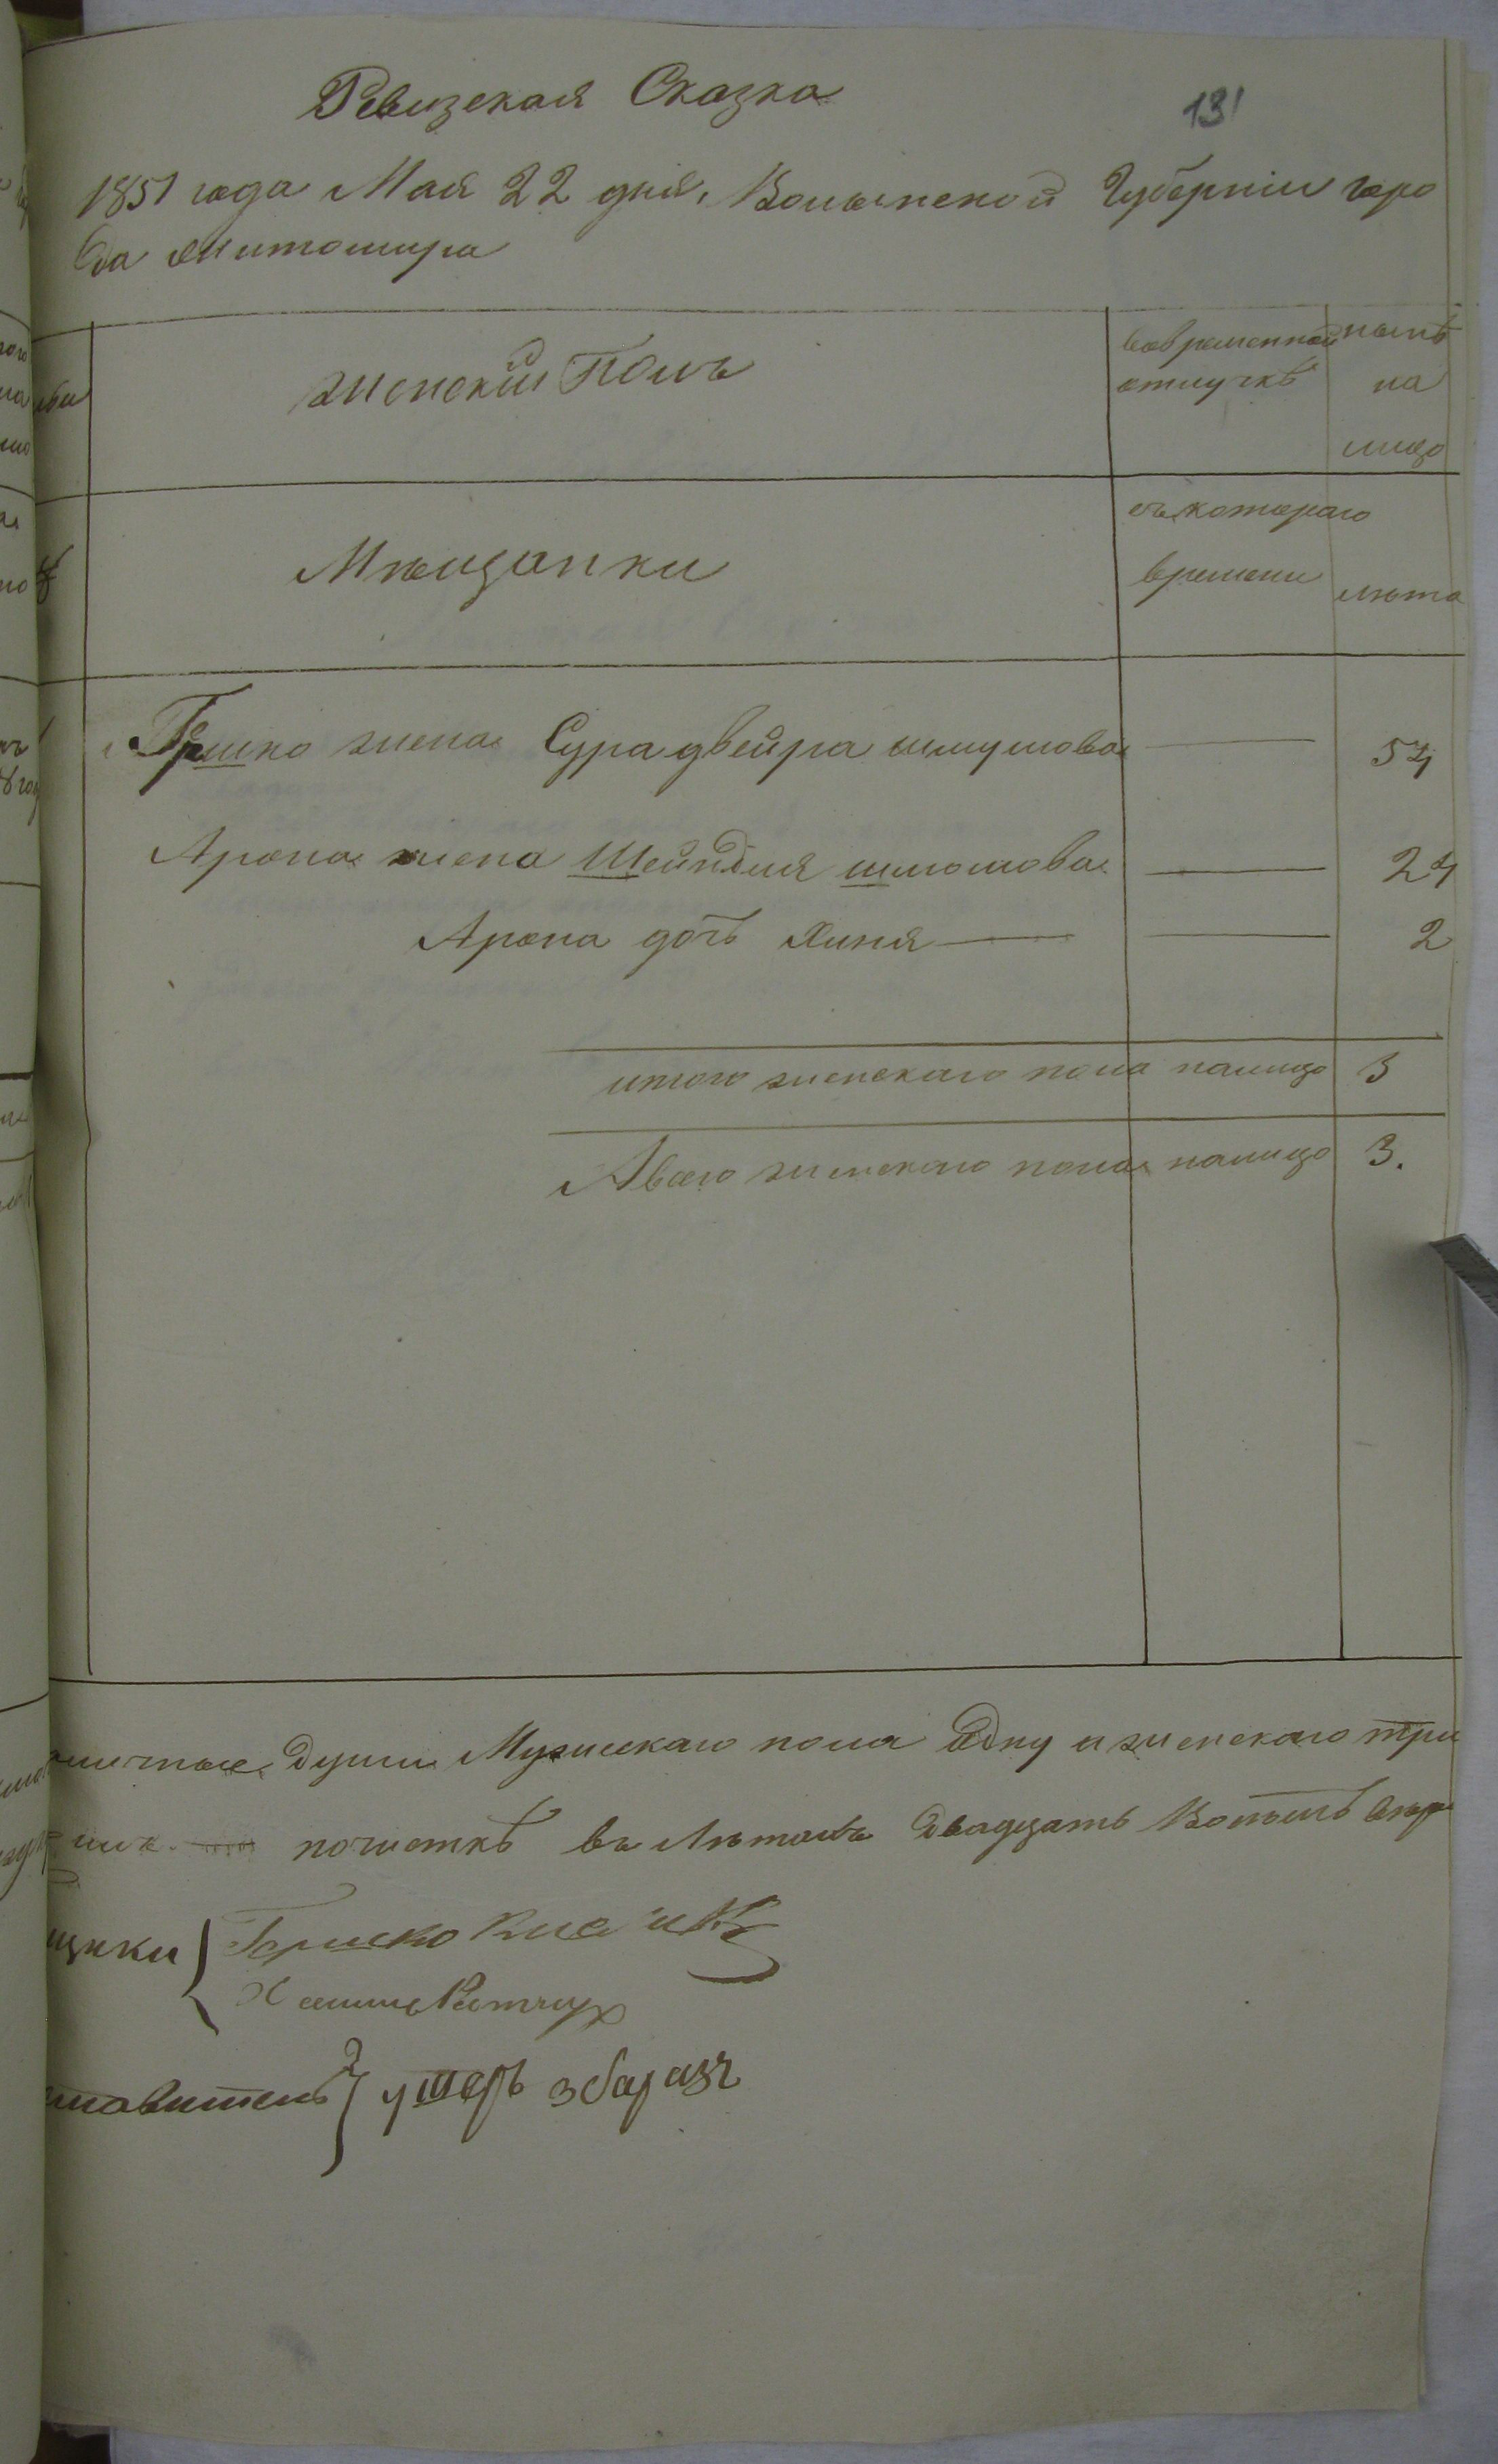 Ревизская Сказка
131
1851 года Мая 22 дня, Волынской Губерніи горо
да Житомира
женскій Полъ
вовременной
отлучкѣ
нынѣ
на
лицо
Мѣщанки
съкотораго
времени
лѣта
Гершко жена Сура двейра шмулова 54
Арона жена Шейндля шломова 24
Арона дочь Хиня 2
итого женскаго пола налицо 3
Авсего женскаго пола налицо 3.
души Мужескаго пола Одну и женскаго три
въ Лѣтахъ двадцать
щики Гершко
ушеръ збаразъ